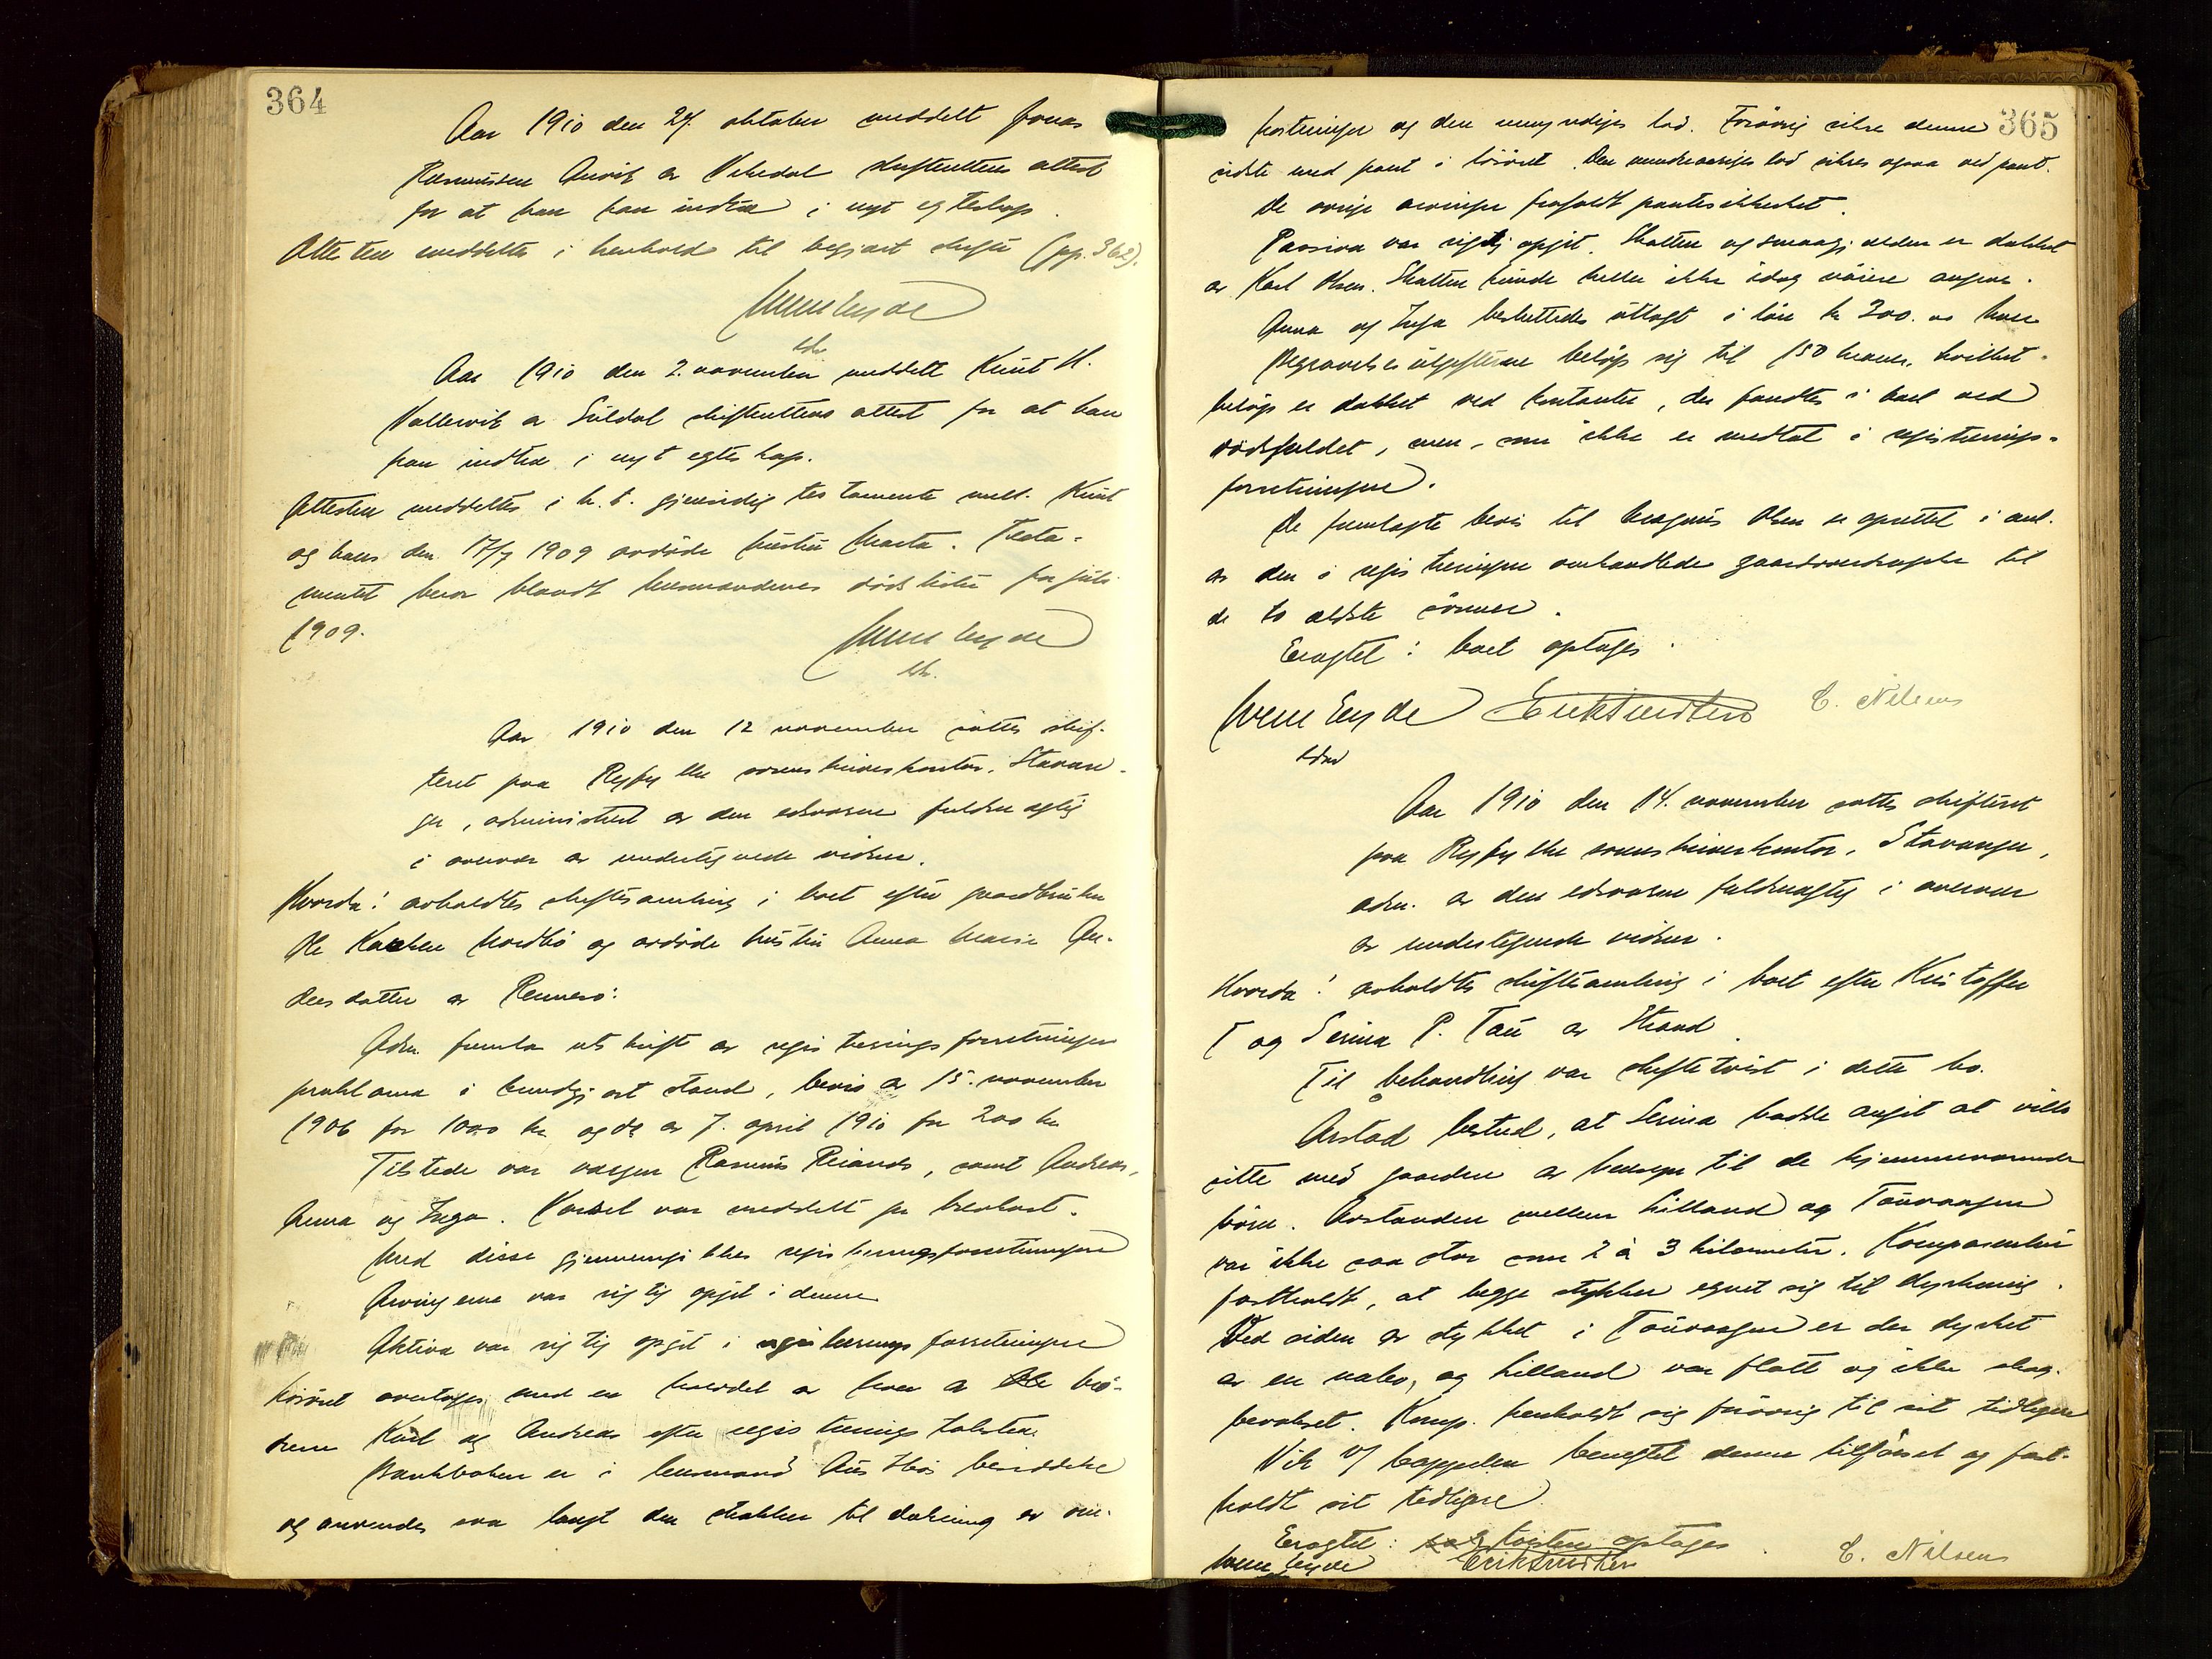 364
Aar 1910 den 29. oktober meddelt Jonas
Rasmussen Anvik av Vikedal skifterettens attest
for at han kan indtræ i nyt egteskap.
Attesten meddeltes i henhold til begjært skifte (pp. 362).
Aar 1910 den 2. november meddelt Knut H.
Vallevik av Suldal skifterettens attest for at han
kan indtræ i nyt egteskap.
Attesten meddeltes i h.t. gjensidig testamente mell. Knut
og hans den 17/7 1909 avdøde hustru Marta. Testa-
mentet beror blandt lensmandenes dødslister for juli
1909.
Aar 1910 den 12 november sattes skif-
teret paa Ryfylke sorenskriverkontor, Stavan-
ger, administrert av den edsvorne fuldmægtig
i overvær av undertegnede vidner.
Hvorda: avholdtes skiftesamling i boet efter gaardbruker
Ole Nordbø og avdøde hustru Anna Marie An-
dersdatter av Rennesø.
Adm. fremla utskrift av registreringsforretningen
proklama i kundgjort stand, bevis av 15. november
1906 for 1000 kr og do av 7. april 1910 for 200 kr
Tilstede var vergen Rasmus Reianes, samt Andreas,
Anna og Inga. Varsel var meddelt pr brevkort.
Med disse gjennemgikkes registreringsforretningen
Arvingerne var rigtig opgit i denne
Aktiva var rigtig opgit i registreringsforretningen
Løsøret overtages med en halvdel av hver av brø-
drene Karl og Andreas efter registreringstaksten.
Bankboken er i lensmand Austbøs besiddelse
og anvendes saa langt den strækker til dækning av om-
365
kostninger og den umyndiges lod. Forøvrig sikres denne
sidste med pant i løsøret. Den mindreaariges lod sikres ogsaa ved pant.
De øvrige arvinger frafaldt pantesikkerhet.
Passiva var rigtig opgit. Skatten og smaagjælden er dækket
av Karl Olsen. Skatten kunde heller ikke idag nøiere angives.
Anna og Inga besluttedes utlagt i løn kr 200.00 hver
Begravelsesutgifterne beløp sig til 150 kroner, hvilket
beløp er dækket ved kontanter, der fandtes i boet ved
dødsfaldet, men, som ikke er medtat i registrerings-
forretningen.
De fremlagte bevis til Magnus Olsen er oprettet i anl.
av den i registreringen omhandlede gaardovertragelse til
de to ældste sønner.
Eragtet: boet optages.
C. Nilsen
Aar 1910 den 14. november sattes skifteret
paa Ryfylke sorenskriverkontor, Stavanger,
adm. av den edsvorne fuldmægtig i overvær
av undertegnede vidner.
Hvorda: avholdtes skiftesamling i boet efter Kristoffer
T og Serina P. Tau av Strand
Til behandling var skiftetvist i dette bo.
Arstad bestred, at Serina hadde angit at ville
sitte med gaarden av hensyn til de hjemmeværende
børn. Avstanden mellem Lilland og Tauvaagen
var ikke saa stor som 2 à 3 kilometer. Komparenten
fastholdt, at begge stykker egnet sig til dyrkning.
Ved siden av stykket i Tauvaagen er der dyrket
av en nabo, og Lilland var flatt og ikke skog-
bevokset. Komp. henholdt sig forøvrig til sit tidligere
Vik v/ Cappelen benegtet denne tilførsel og fast-
holdt sit tidligere.
Eragtet: tvisten optages.
C. Nilsen